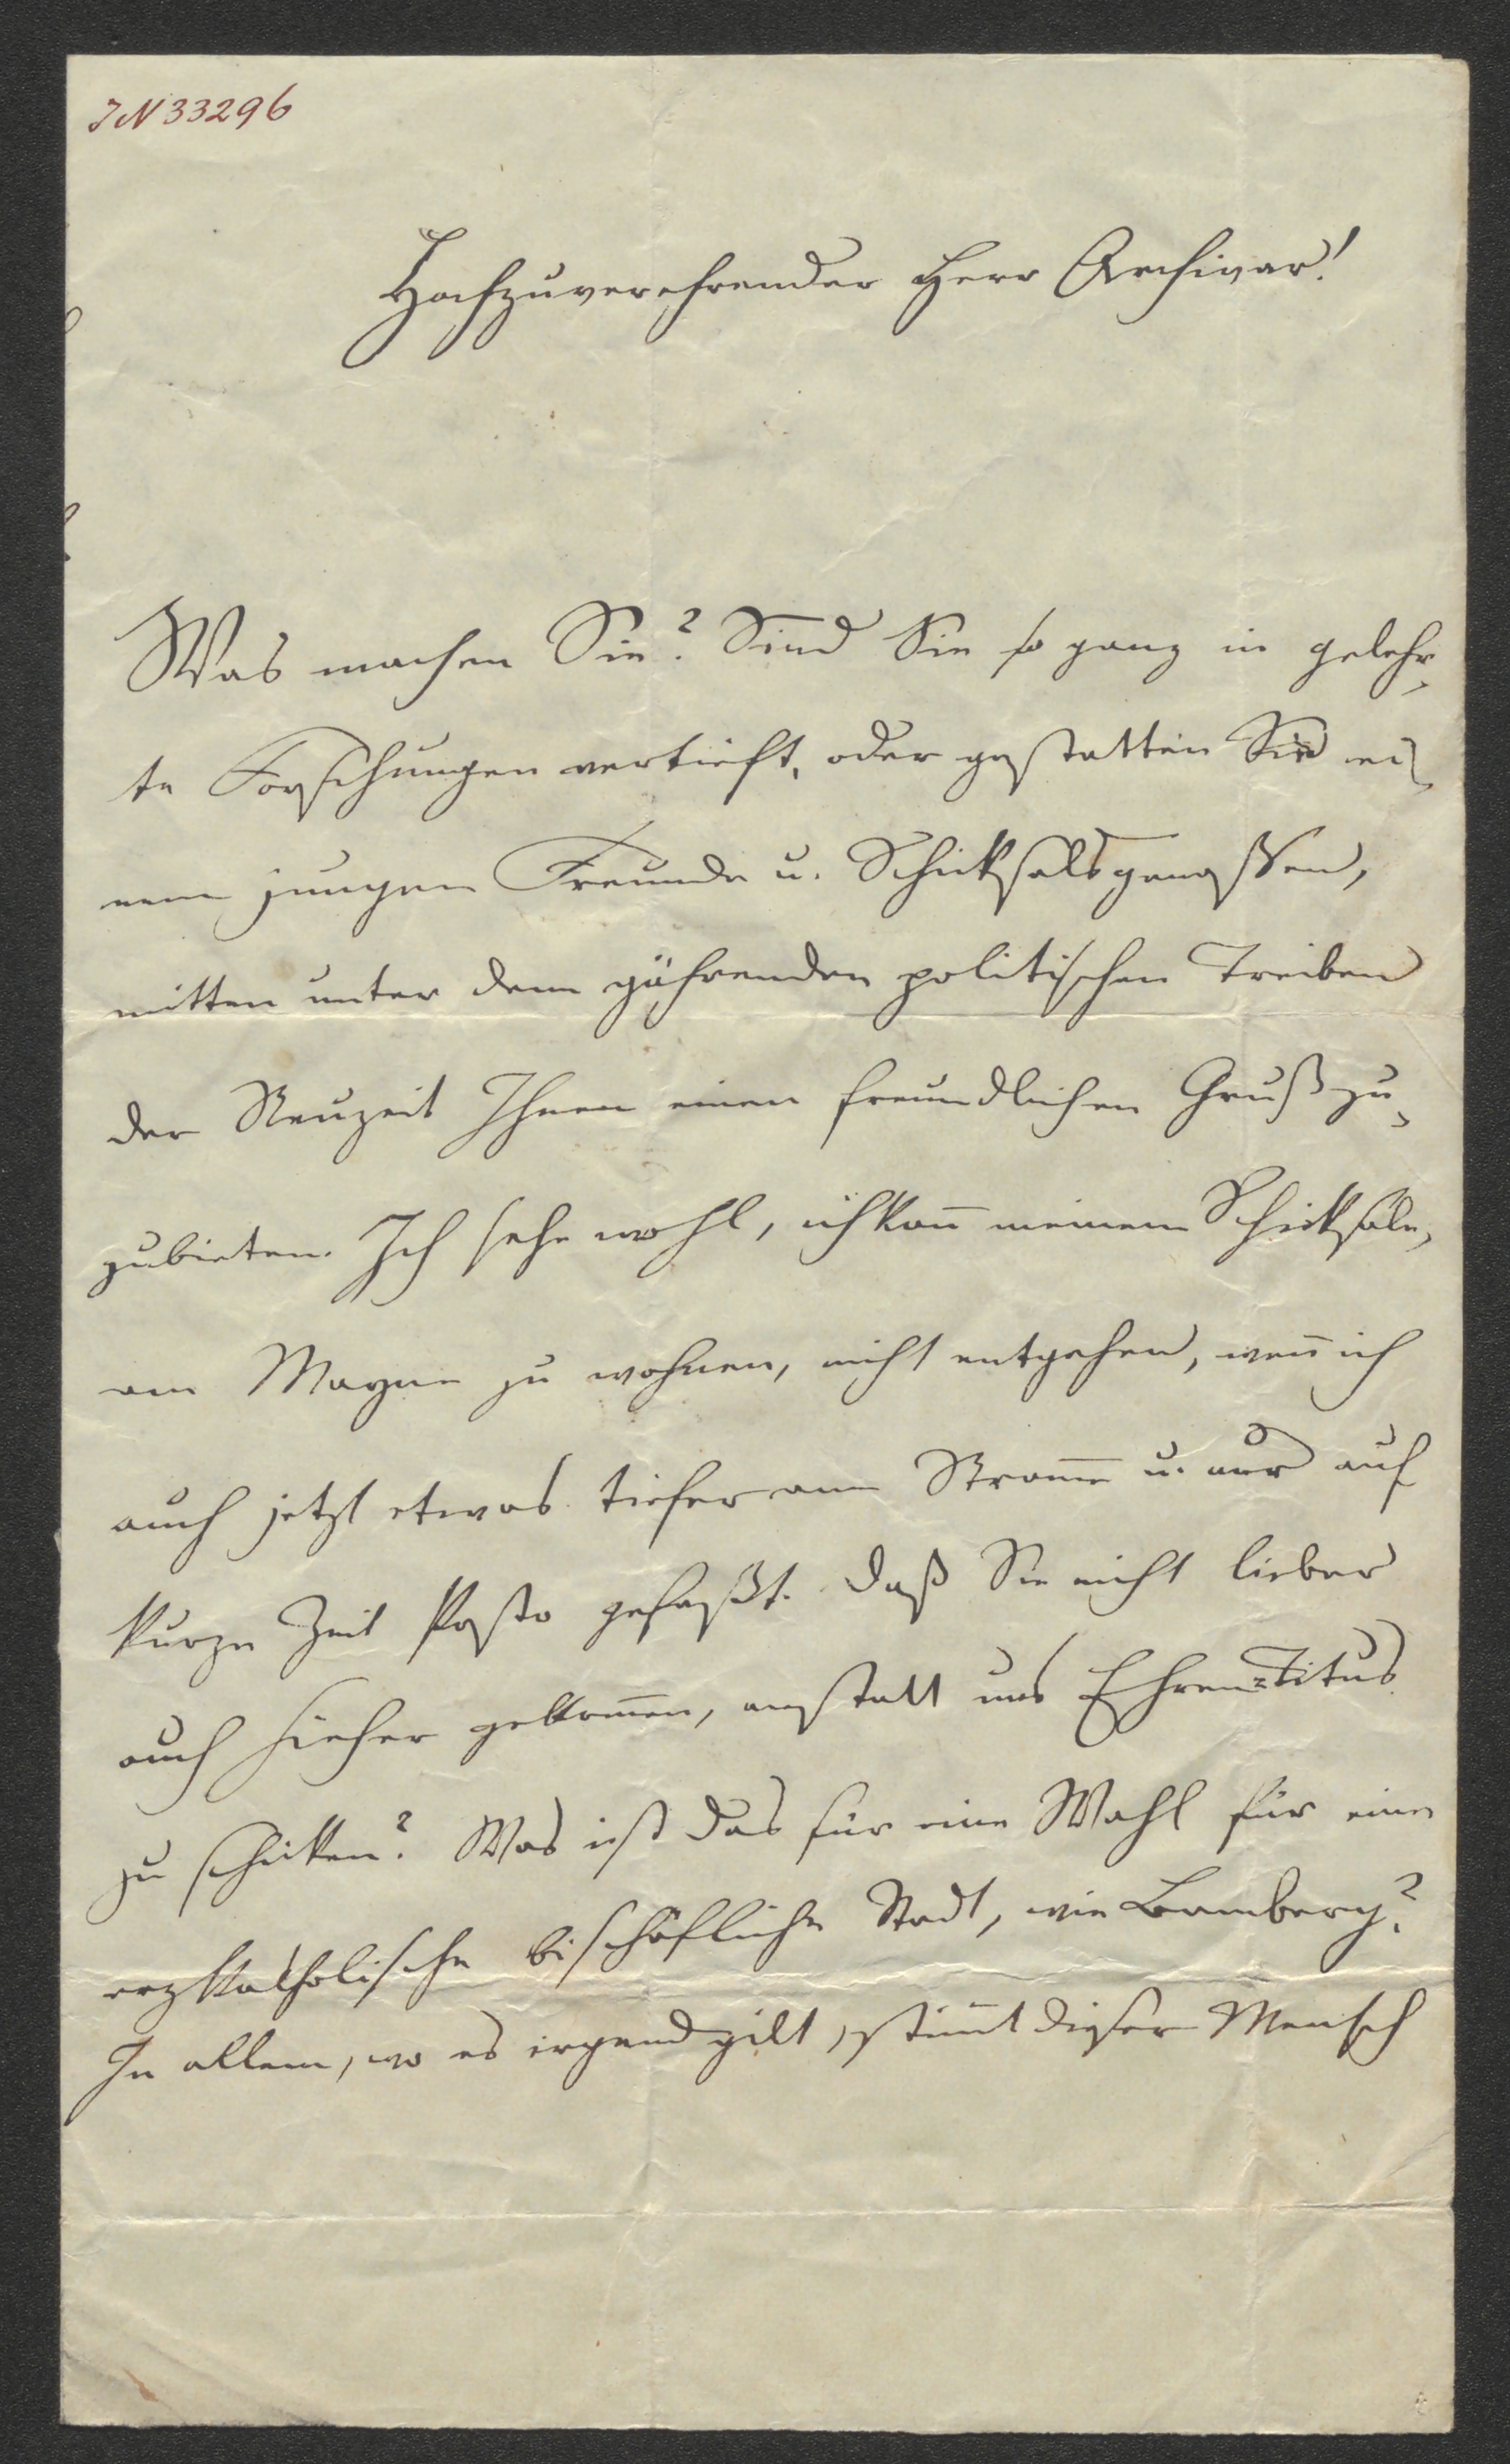 JN 33296
Hochzuverehrender Herr Archivar!
Was machen Sie? Sind Sie so ganz in gelehr-
te Forschungen vertieft, oder gestatten Sie ei-
nem jungen Freunde u. Schicksalsgenoßen,
mitten unter dem gährenden politischen Treiben
der Neuzeit Ihnen einen freundlichen Gruß zu-
zubieten. Ich sehe wohl, ich kan̄ meinem Schicksale,
am Mayne zu wohnen, nicht entgehen, wen̄ ich
auch jetzt etwas tiefer am Strom̄e u. nur auf
kurze Zeit Posto gefaßt. Daß Sie nicht lieber
auch hieher gekom̄en, anstatt uns Ehren-Titus
zu schicken? Was ist das für eine Wahl für eine
erzkatholische bischöfliche Stadt, wie Bamberg?
In allem, wo es irgend gilt, stim̄t dieser Mensch